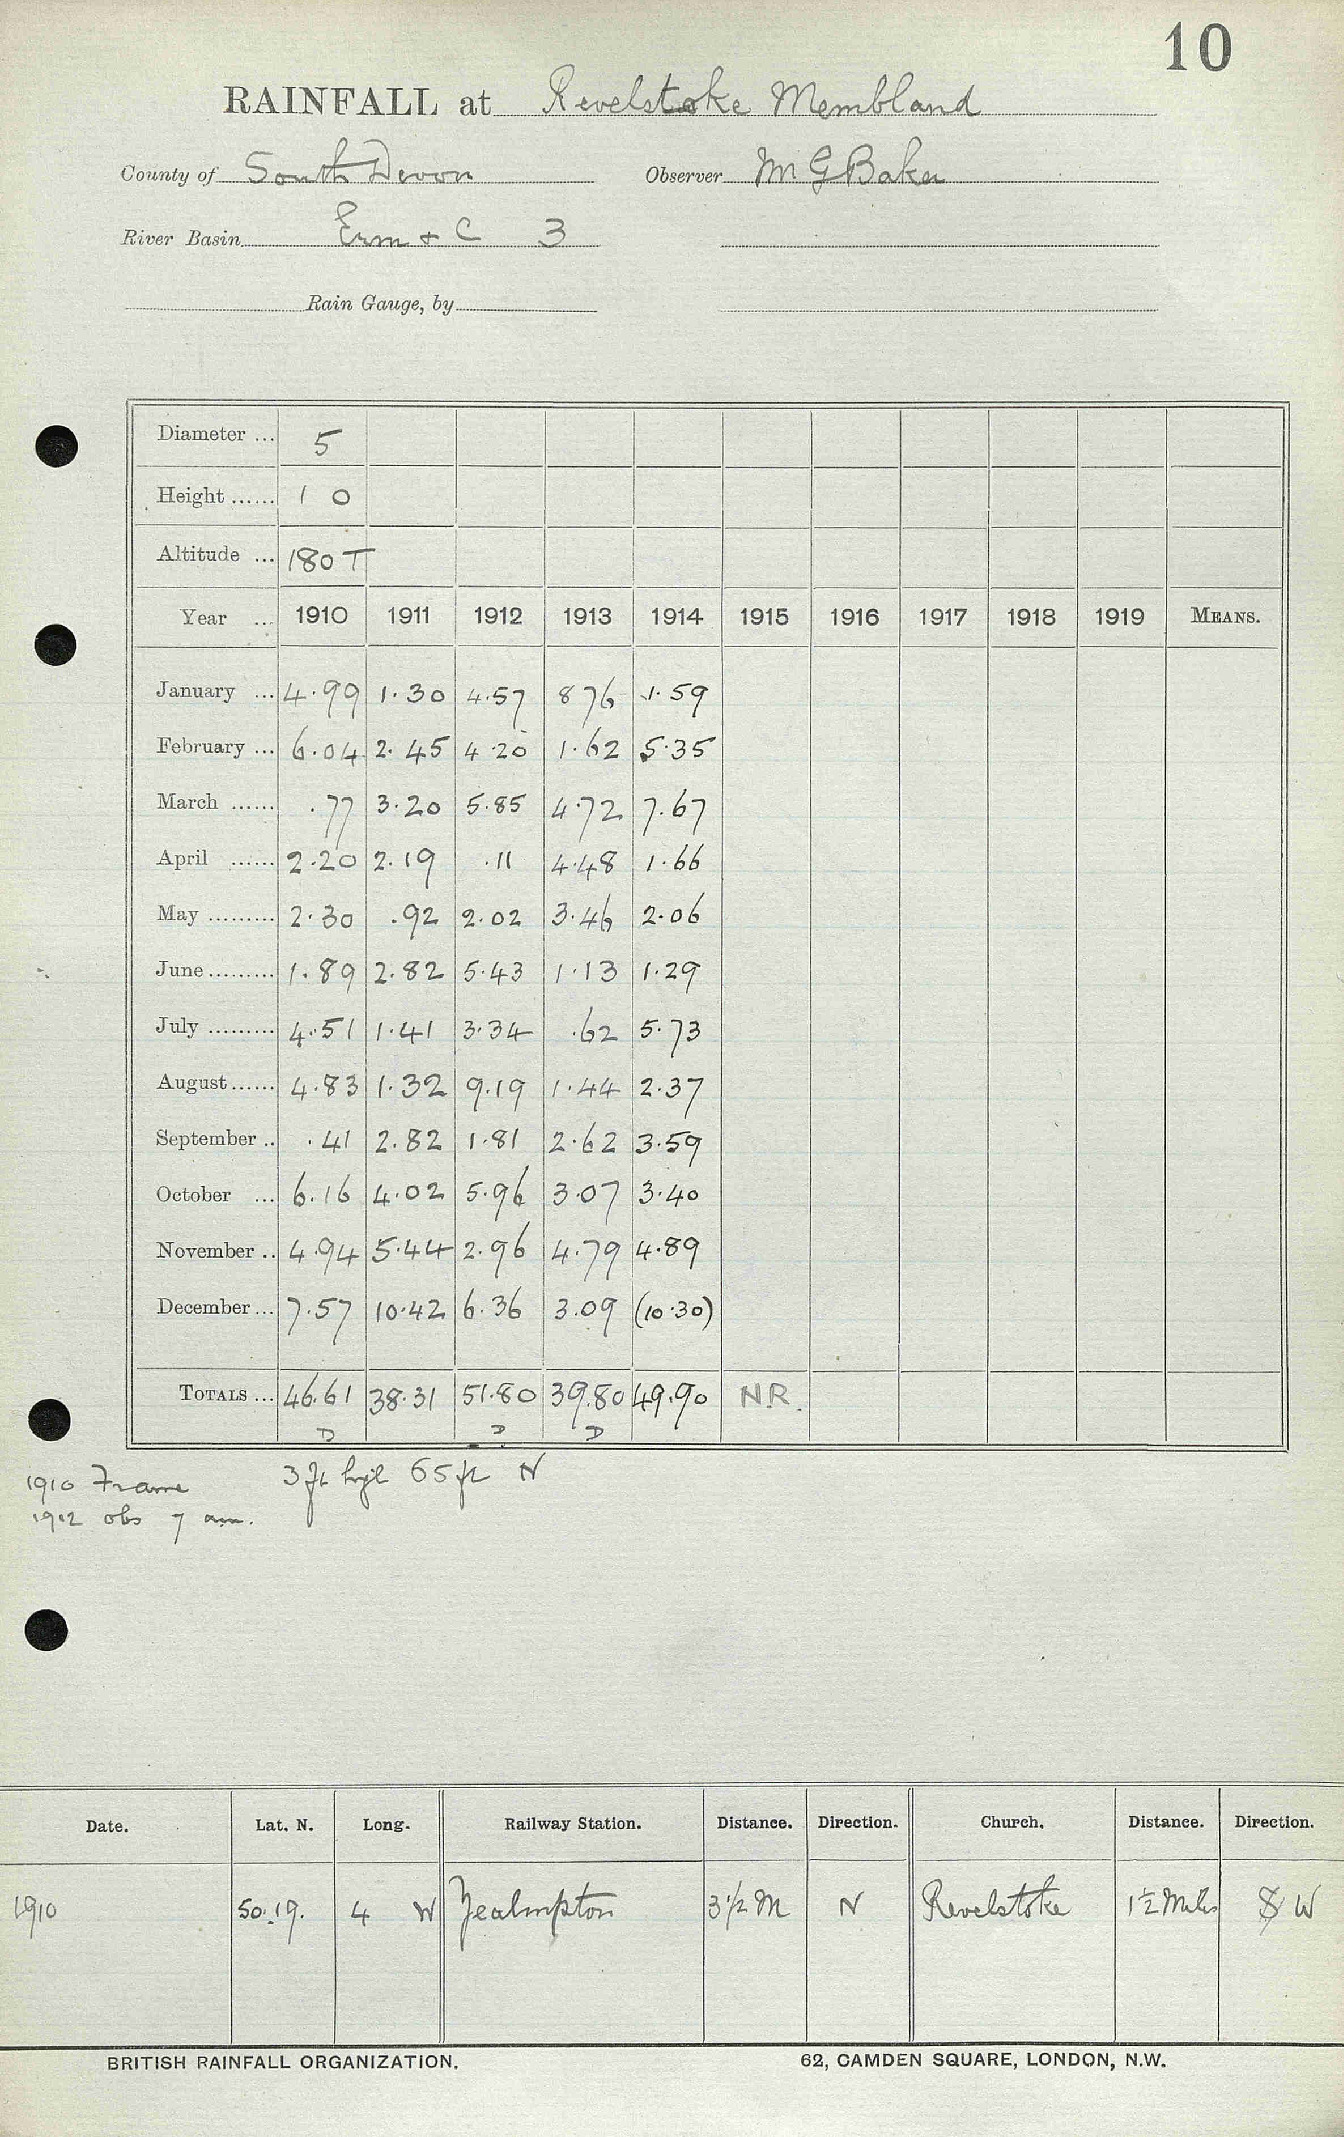 10
RAINFALL at Revelstoke Membland
County of South Devon Observer M G Baker
River Basin Erm & C 3
Rain Gauge, by
Diameter ... 5
Height ...... 1 0
Altitude ... 180 T
Year ... 1910 1911 1912 1913 1914 1915 1916 1917 1918 1919 MEANS.
January ... 4.99 1.30 4.57 876 1.59
February ... 6.04 2.45 4.20 1.62 5.35
March ...... .77 3.20 5.85 4.72 7.67
April ...... 2.20 2.19 .11 4.48 1.66
May ......... 2.30 .92 2.02 3.46 2.06
June ......... 1.89 2.82 5.43 1.13 1.29
July ......... 4.51 1.41 3.34 .62 5.73
August ...... 4.83 1.32 9.19 1.44 2.37
September .. .41 2.82 1.81 2.62 3.59
October ... 6.16 4.02 5.96 3.07 3.40
November .. 4.94 5.44 2.96 4.79 4.89
December ... 7.57 10.42 6.36 3.09 (10.30)
TOTALS ... 46.61 38.31 51.80 39.80 49.90 N.R.
D D D
1910 Frame 3 ft high 65 ft N
1912 obs 7 am.
Date. Lat. N. Long. Railway Station. Distance. Direction. Church. Distance. Direction.
1910 50.19. 4 W Yealmpton 3½ M N Revelstoke 1½ Miles W
BRITISH RAINFALL ORGANIZATION. 62, CAMDEN SQUARE, LONDON, N.W.